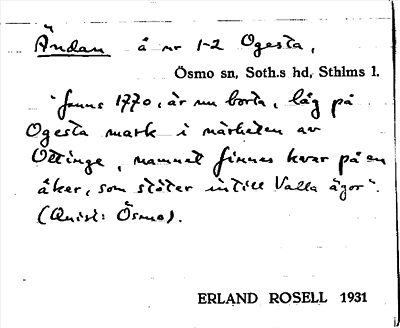 Ändan å nr 1-2 Ogesta,
Ösmo sn, Soth.s hd, Sthlms l.
"fanns 1770, är nu borta, låg på
Ogesta mark i närheten av
Ottinge, namnet finnes kvar på en
åker, som stöter intill Valla ägor".
(Qvist: Ösmo).
ERLAND ROSELL 1931